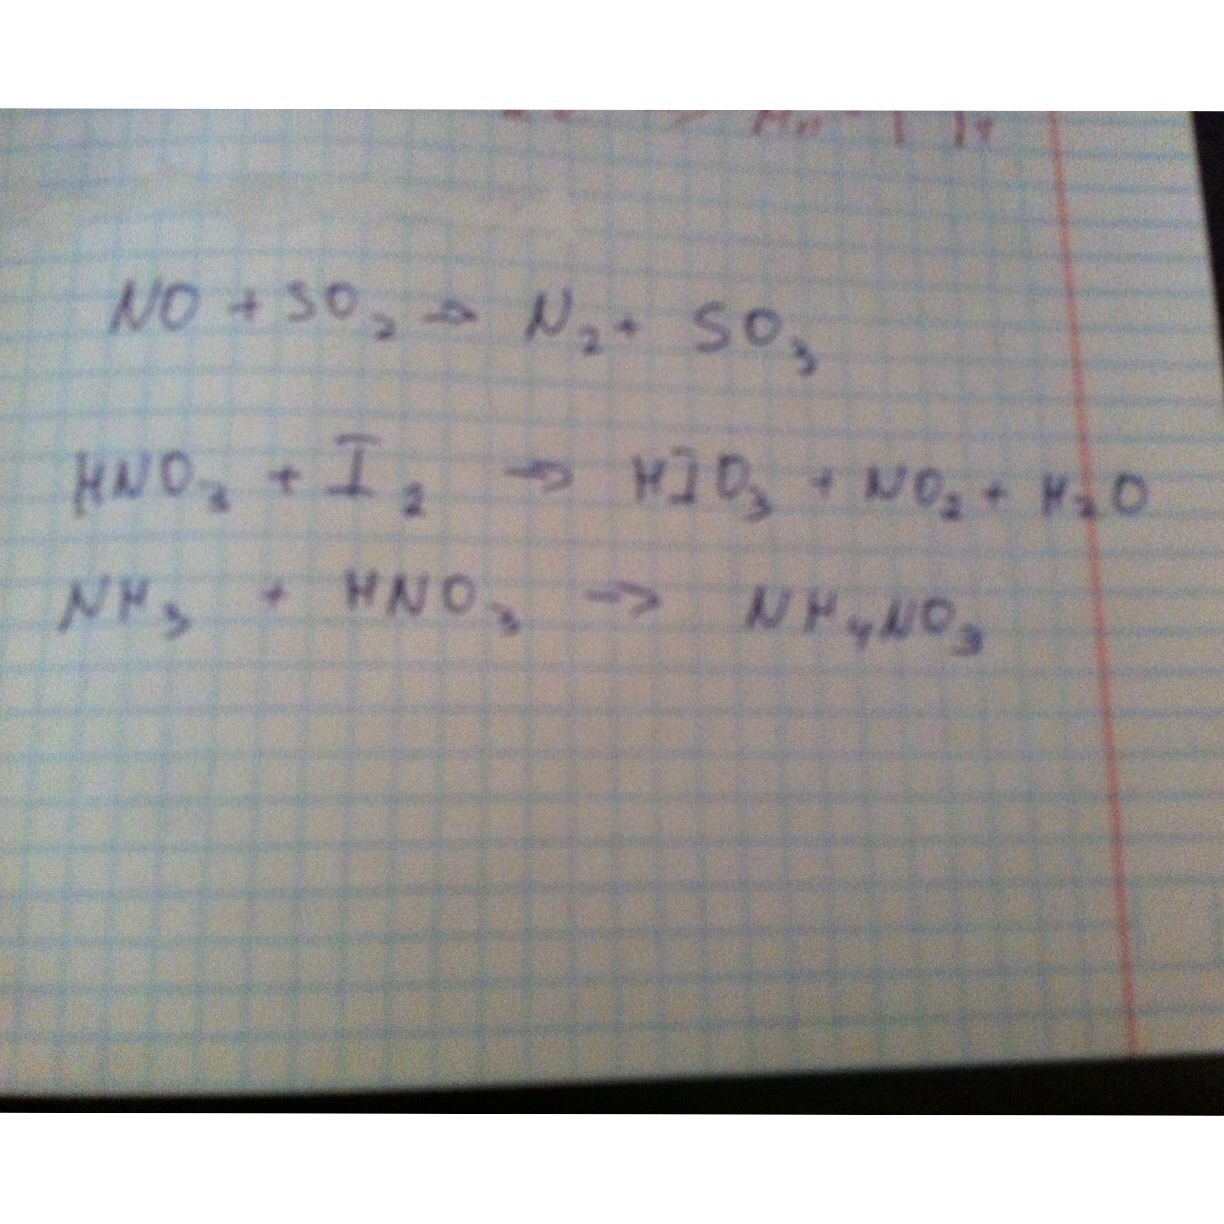 NO + SO₂ → N₂ + SO₃
HNO₃ + I₂ → HIO₃ + NO₂ + H₂O
NH₃ + HNO₃ → NH₄NO₃